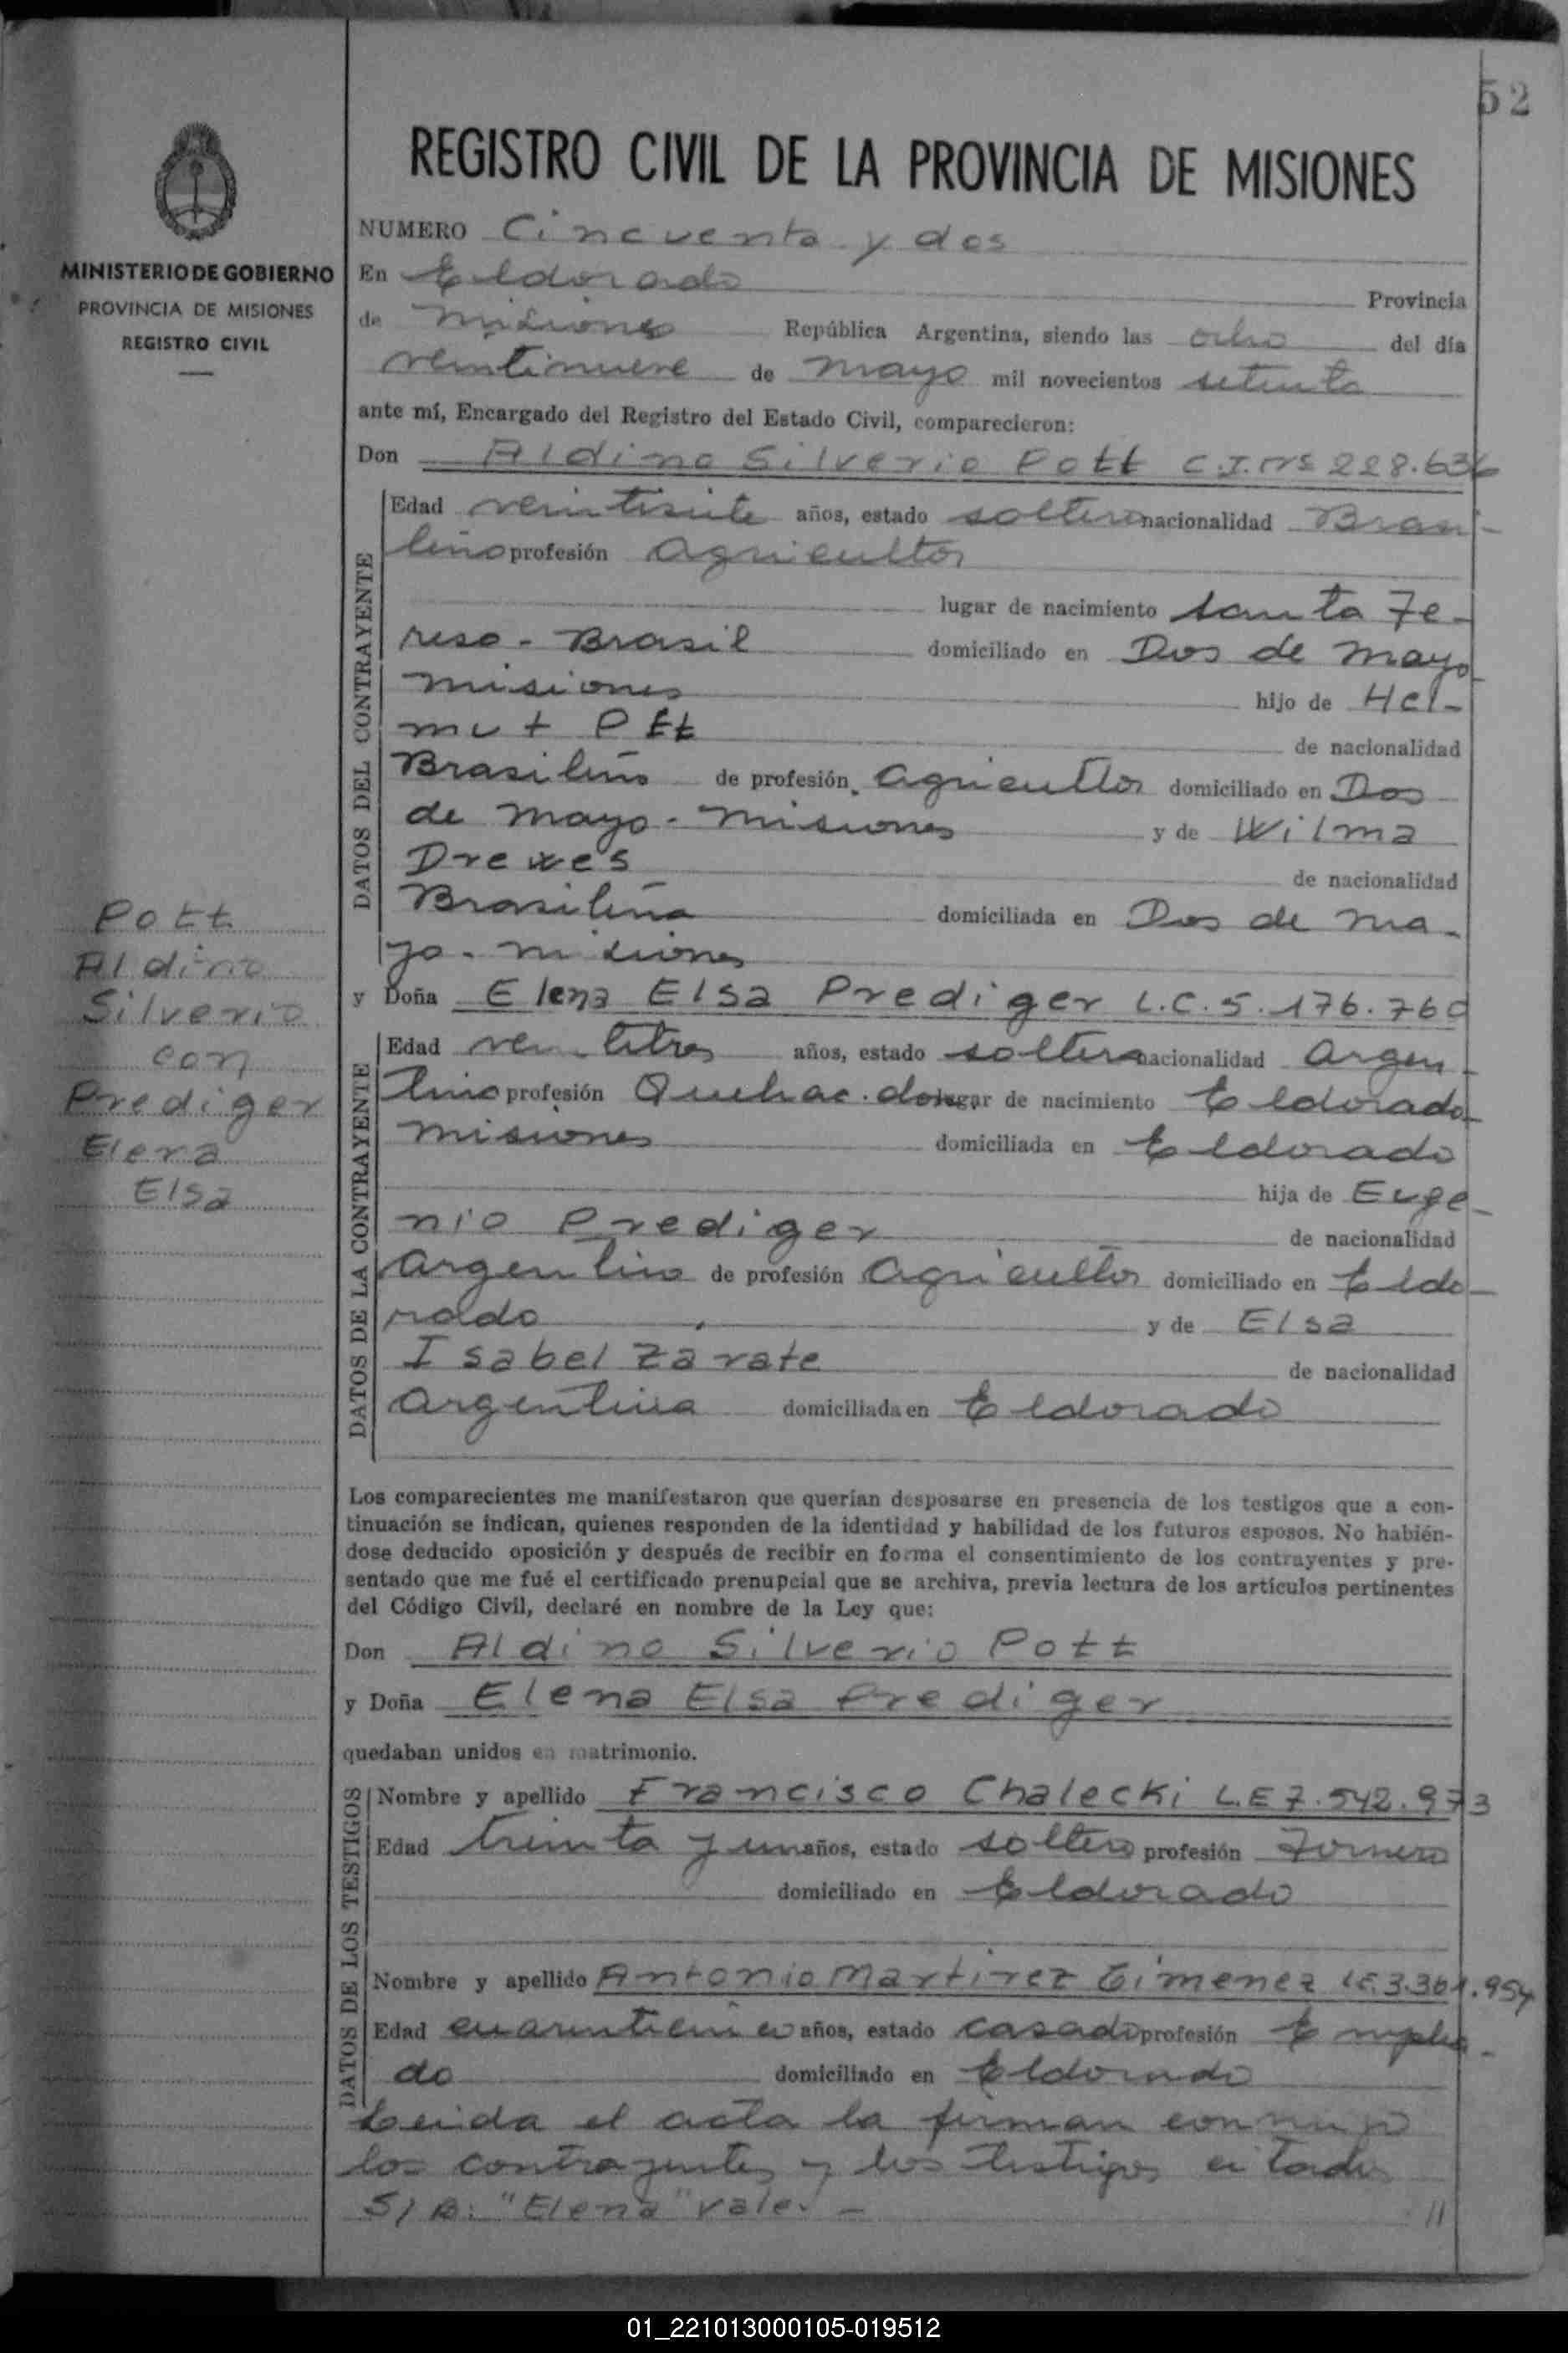 52
REGISTRO CIVIL DE LA PROVINCIA DE MISIONES
MINISTERIO DE GOBIERNO
PROVINCIA DE MISIONES
REGISTRO CIVIL
Pott
Aldino
Silverio
con
Prediger
Elena
Elsa
NUMERO Cincuenta y dos
En Eldorado Provincia
de Misiones República Argentina, siendo las ocho del día
veintinueve de mayo mil novecientos setenta
ante mí, Encargado del Registro del Estado Civil, comparecieron:
Don Aldino Silverio Pott C.I. Nº 228.636
DATOS DEL CONTRAYENTE
Edad veintisiete años, estado soltero nacionalidad Brasi-
leño profesión agricultor
lugar de nacimiento Santa Te-
resa - Brasil domiciliado en Dos de Mayo
Misiones hijo de Hel-
mut Ptt de nacionalidad
Brasileño de profesión agricultor domiciliado en Dos
de Mayo - Misiones y de Wilma
Drewes de nacionalidad
Brasileña domiciliada en Dos de Ma-
yo - Misiones
y Doña Elena Elsa Prediger L.C. 5.176.760
DATOS DE LA CONTRAYENTE
Edad veintitres años, estado soltera nacionalidad argen-
tina profesión Quehac. dom. lugar de nacimiento Eldorado-
Misiones domiciliada en Eldorado
hija de Euge-
nio Prediger de nacionalidad
argentino de profesión agricultor domiciliado en Eldo-
rado y de Elsa
Isabel Zarate de nacionalidad
argentina domiciliada en Eldorado
Los comparecientes me manifestaron que querían desposarse en presencia de los testigos que a con-
tinuación se indican, quienes responden de la identidad y habilidad de los futuros esposos. No habién-
dose deducido oposición y después de recibir en forma el consentimiento de los contrayentes y pre-
sentado que me fué el certificado prenupcial que se archiva, previa lectura de los artículos pertinentes
del Código Civil, declaré en nombre de la Ley que:
Don Aldino Silverio Pott
y Doña Elena Elsa Prediger
quedaban unidos en matrimonio.
DATOS DE LOS TESTIGOS
Nombre y apellido Francisco Chalecki L.E 7.542.973
Edad treinta y un años, estado soltero profesión Tornero
domiciliado en Eldorado
Nombre y apellido Antonio Martinez Gimenez L.E. 3.361.954
Edad años, estado casado profesión Emplea-
do domiciliado en Eldorado
Leida el acta la firman conmigo
los contrayentes y los testigos citados
S/R: "Elena" vale. -
//
01_221013000105-019512